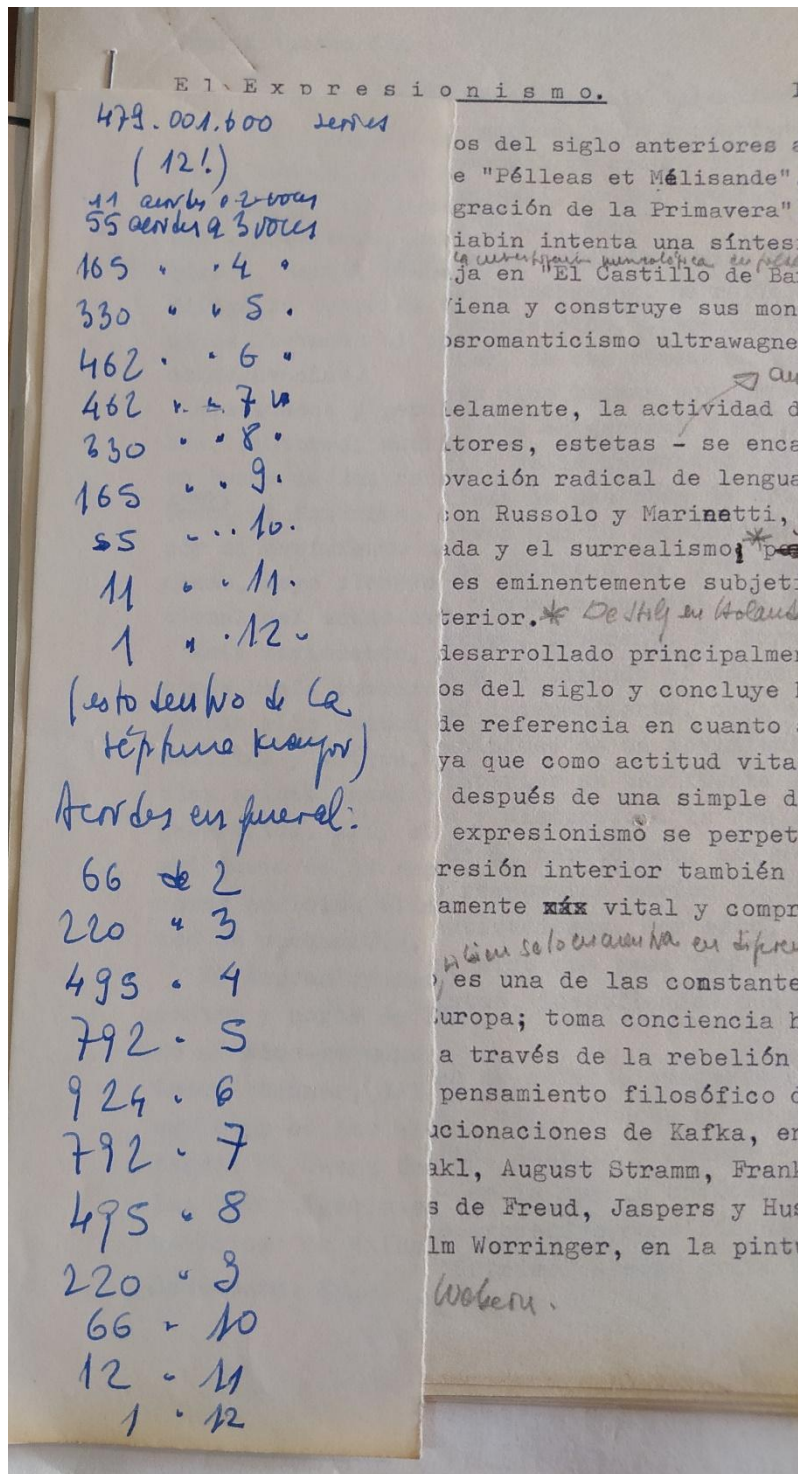 El Expresionismo.
479.001.600 series
(12!)
11 acordes a 2 voces
55 acordes a 3 voces
165 " " 4 "
330 " " 5 "
462 " " 6 "
462 " " 7 "
330 " " 8 "
165 " " 9 "
55 " " 10 "
11 " " 11 "
1 " " 12 "
(esto dentro de la
séptima mayor)
Acordes en general:
66 de 2
220 " 3
495 " 4
792 " 5
924 " 6
792 " 7
495 " 8
220 " 9
66 " 10
12 " 11
1 " 12
os del siglo anteriores a
e "Pélleas et Mélisande".
gración de la Primavera"
iabin intenta una síntesi
la investigación
ja en "El Castillo de Ba
iena y construye sus mon
osromanticismo ultrawagne
elamente, la actividad d
tores, estetas - se enca
ovación radical de lengua
con Russolo y Marinetti,
ada y el surrealismo;
es eminentemente subjeti
terior.* De Stijl en Holand
desarrollado principalmen
os del siglo y concluye
de referencia en cuanto
ya que como actitud vita
después de una simple d
expresionismo se perpet
resión interior también
amente xáx vital y compr
se lo encuentra en diferen
es una de las constante
uropa; toma conciencia h
a través de la rebelión
pensamiento filosófico
ucionaciones de Kafka, en
akl, August Stramm, Frank
s de Freud, Jaspers y Hus
lm Worringer, en la pintu
Webern.